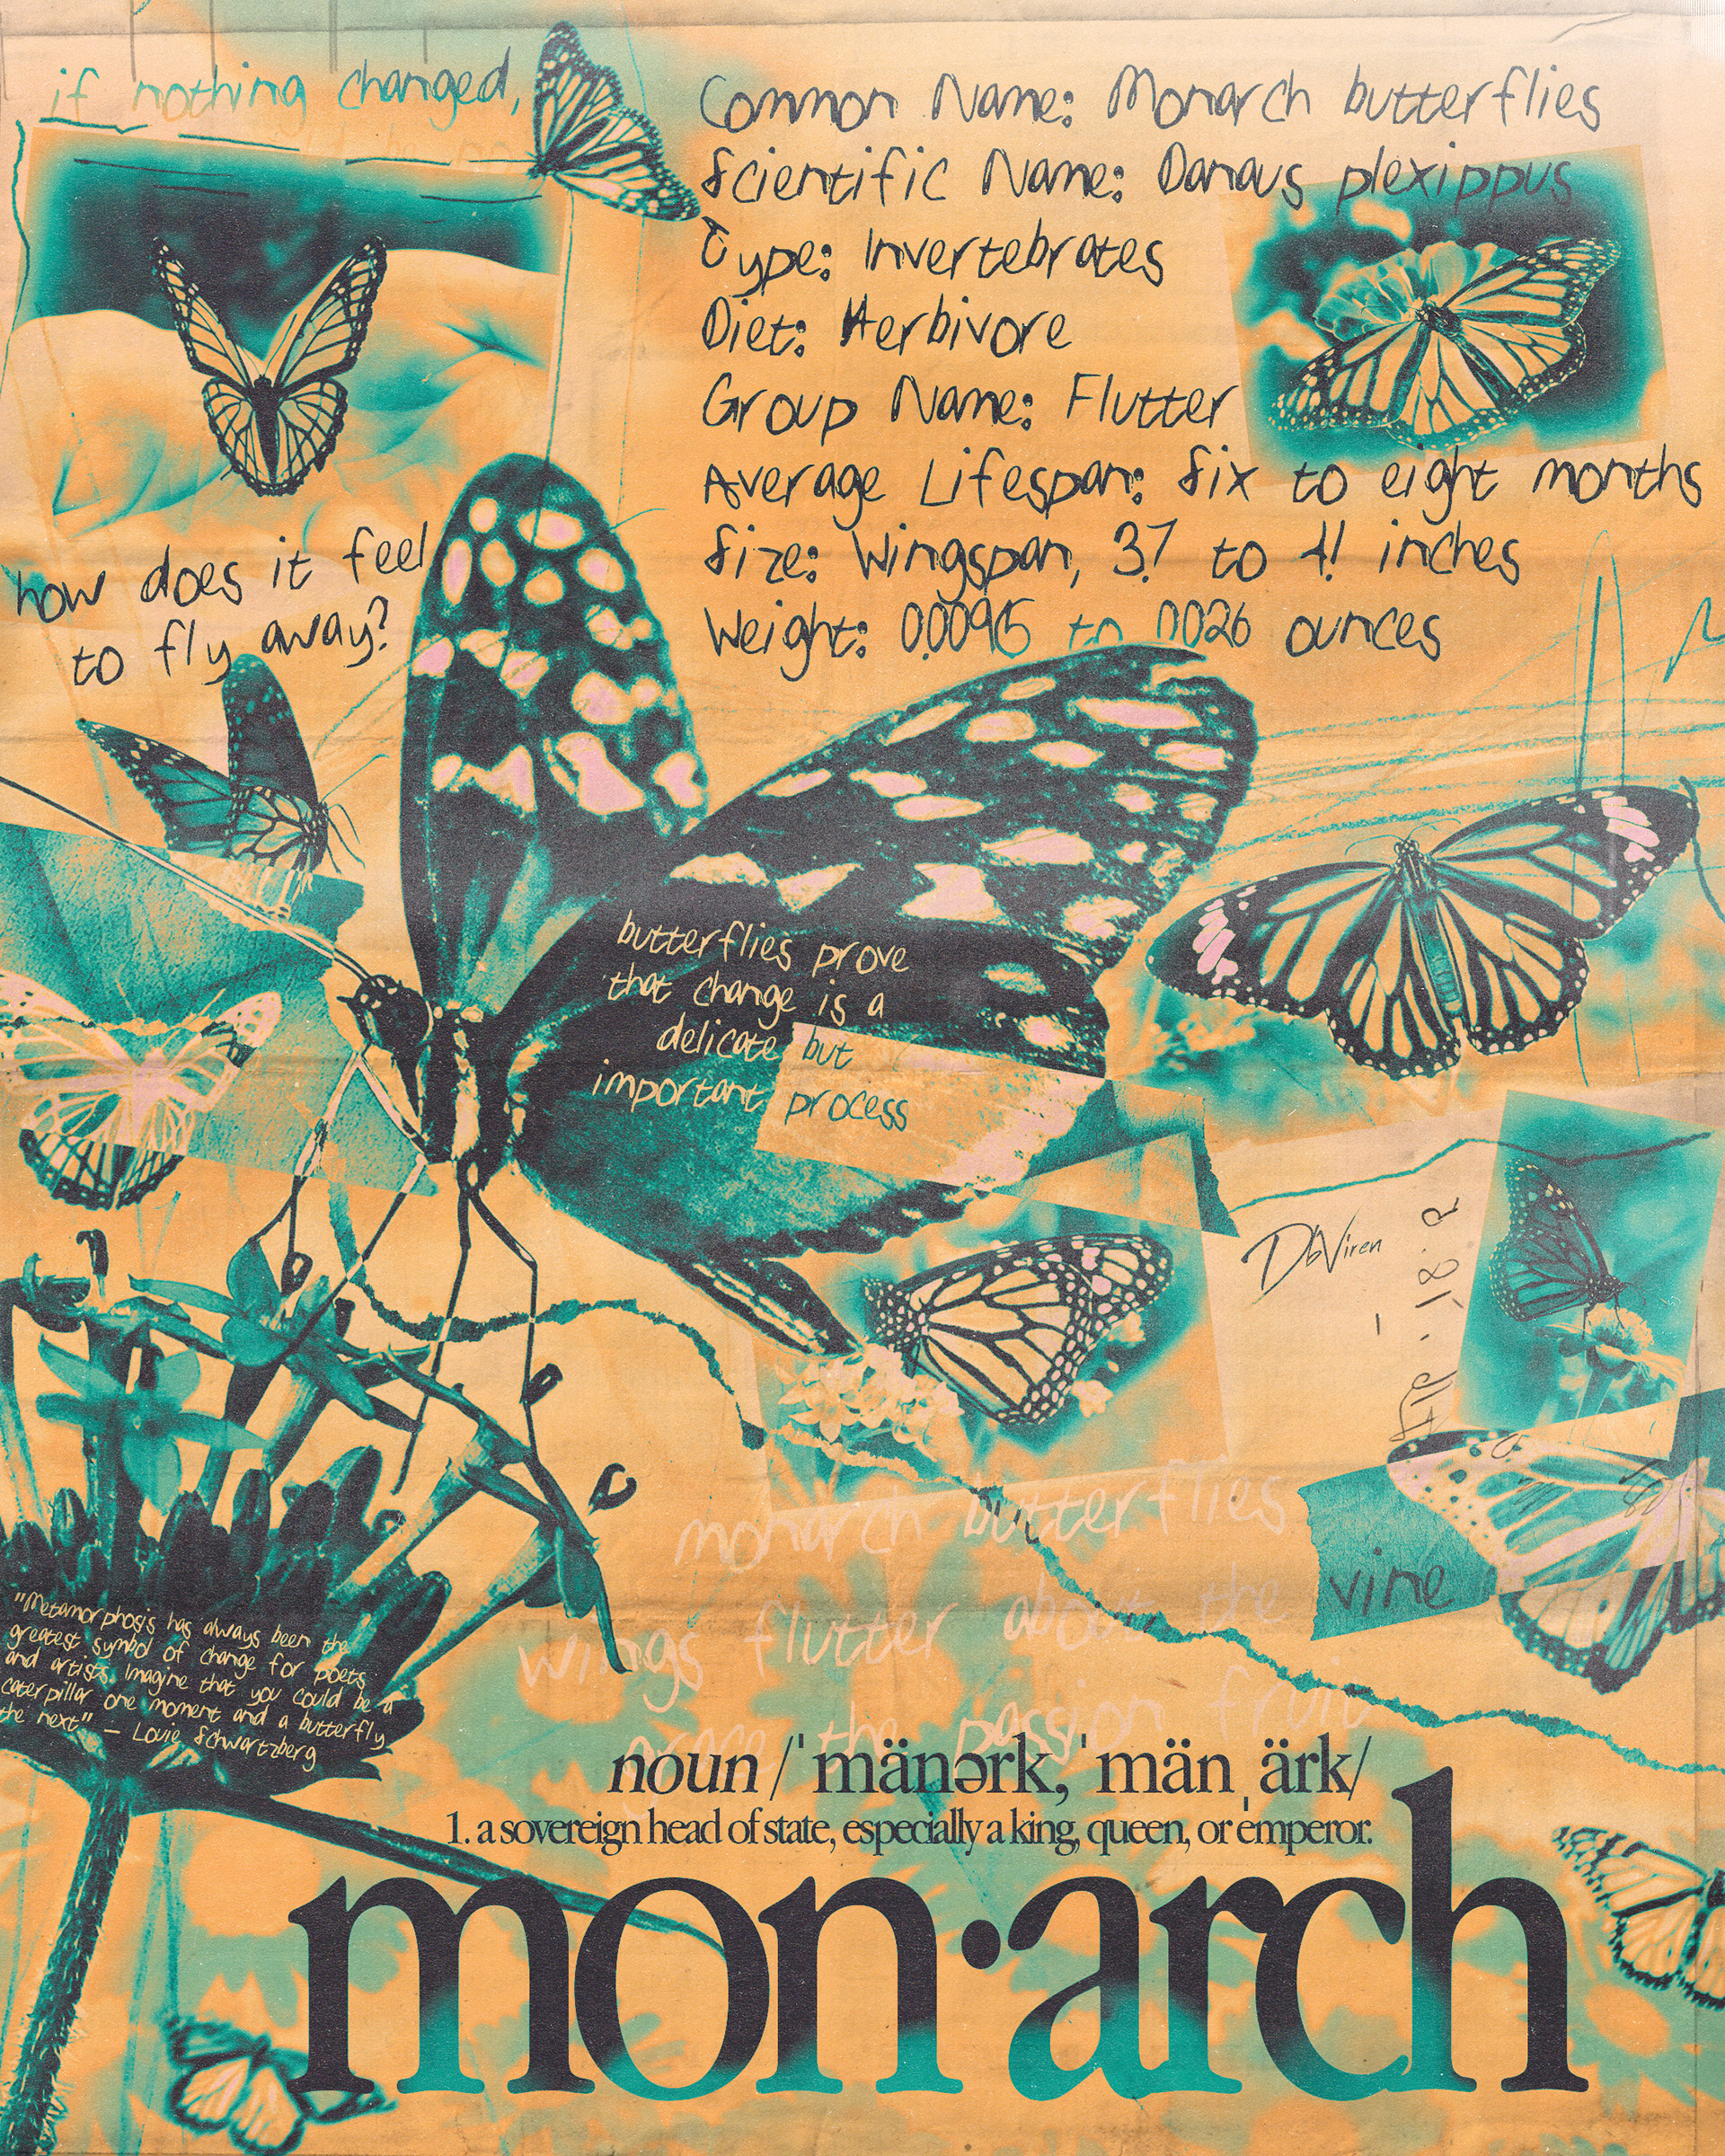 if nothing changed,
Common Name: Monarch butterflies
Scientific Name: Danaus plexippus
Type: Invertebrates
Diet: Herbivore
Group Name: Flutter
Average Lifespan: Six to eight months
Size: Wingspan, 3.7 to 4.1 inches
Weight: 0.0095 to .0026 ounces
how does it feel
to fly away?
butterflies prove
that change is a
delicate but
important process
DbViren
monarch butterflies
wings flutter about the vine
grace the passion fruit
"Metamorphosis has always been the
greatest symbol of change for poets
and artists. Imagine that you could be a
caterpillar one moment and a butterfly
the next" — Louie Schwartzberg
noun /ˈmänərk, ˈmänˌärk/
1. a sovereign head of state, especially a king, queen, or emperor.
mon·arch